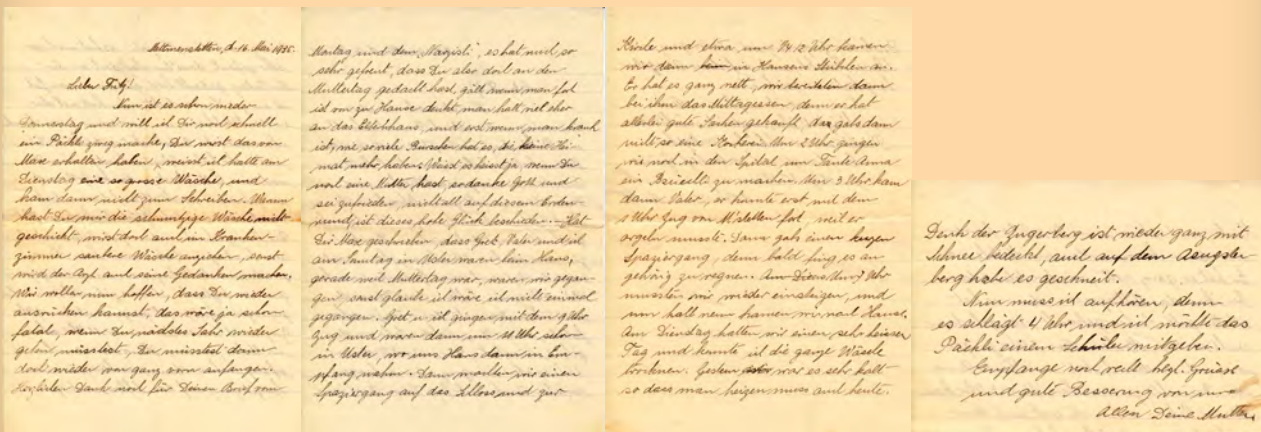 Mettmenstetten, d. 16. Mai 1935.
Lieber Fritz!
Nun ist es schon wieder
Donnerstag und will ich Dir noch schnell
ein Päckli zweg mache, Du wirst das von
Max erhalten haben, weisst ich hatte am
Dienstag eine so grosse Wäsche, und
kam dann nicht zum Schreiben. Warum
hast Du mir die schmutzige Wäsche nicht
geschickt, wirst doch auch im Kranken-
zimmer saubere Wäsche anziehen, sonst
wird der Arzt auch seine Gedanken machen.
Wir wollen nun hoffen, dass Du wieder
ausrücken kannst, das wäre ja schon
fatal, wenn Du nächstes Jahr wieder
gehen müsstest, Du müsstest dann
doch wieder von ganz vorn anfangen.
Herzlichen Dank noch für Deinen Brief vom
Montag und dem "Narzissli", es hat mich so
sehr gefreut, dass Du also dort an den
Muttertag gedacht hast, gält wenn man fort
ist von zu Hause denkt man halt viel eher
an das Elternhaus, und erst wenn man krank
ist, wie so viele Burschen hat es, die keine Hei-
mat mehr haben. Weisst es heisst ja, wenn Du
noch eine Mutter hast, so danke Gott und
sei zufrieden, nicht all auf diesem Erden-
rund, ist dieses hohe Glück beschieden. — Hat
Dir Max geschrieben, dass Gret, Vater und ich
am Sonntag in Uster waren beim Hans,
gerade weil Muttertag war, waren wir gegan-
gen, sonst glaube ich wäre ich nicht einmal
gegangen. Gret u. ich gingen mit dem 9 Uhr
Zug und waren dann um 11 Uhr schon
in Uster, wo uns Hans dann in Em-
pfang nahm. Dann machten wir einen
Spaziergang auf das Schloss und zur
Kirche und etwa um 1/4 12 Uhr kamen
wir dann in Hansens Stübchen an.
Er hat es ganz nett, wir bereiteten dann
bei ihm das Mittagessen, denn er hat
allerlei gute Sachen gekauft, da gabs dann
nicht so eine Kocherei. Um 2 Uhr gingen
wir noch in den Spital um Tante Anna
ein Bsüechli zu machen. Um 3 Uhr kam
dann Vater, er konnte erst mit dem
1 Uhr Zug von M'stetten fort, weil er
orgeln musste. Dann gabs einen kurzen
Spaziergang, denn bald fing es an
gehörig zu regnen. Um 7 Uhr
mussten wir wieder einsteigen, und
um halb neun kamen wir nach Hause.
Am Dienstag hatten wir einen sehr heissen
Tag und konnte ich die ganze Wäsche
trocknen. Gestern war es sehr kalt
so dass man heizen muss auch heute.
Denk der Zugerberg ist wieder ganz mit
Schnee bedeckt, auch auf dem Aeugster-
berg habe es geschneit.
Nun muss ich aufhören, denn
es schlägt 4 Uhr, und ich möchte das
Päckli einem Schüler mitgeben.
Empfange noch recht hzl. Grüsse
und gute Besserung von uns
Allen Deine Mutter.